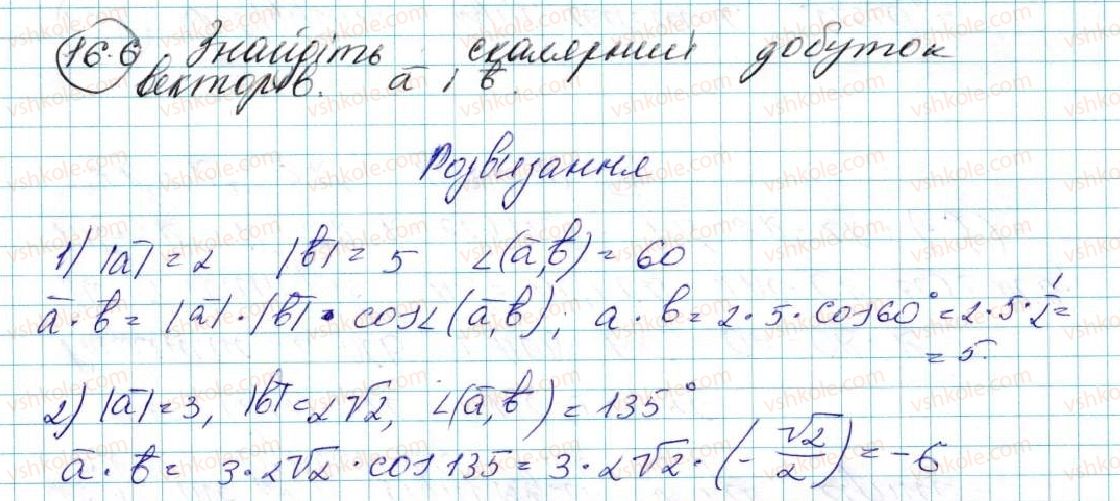 16.6. Знайдіть скалярний добуток
векторів. a̅ і b̅.
Розв'язання
1) |a̅| = 2 |b̅| = 5 ∠(a̅, b̅) = 60
a̅ · b̅ = |a̅| · |b̅| · cos∠(a̅, b̅); a · b = 2 · 5 · cos60° = 2 · 5 · 1/2 =
= 5.
2) |a̅| = 3, |b̅| = 2√2, ∠(a̅, b̅) = 135°
a̅ · b̅ = 3 · 2√2 · cos 135 = 3 · 2√2 · (-√2/2) = -6